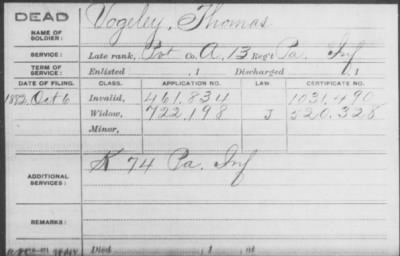 DEAD
NAME OF SOLDIER: Vogeley, Thomas
SERVICE: Late rank, Pvt Co. A, 13 Reg't Pa. Inf
TERM OF SERVICE: Enlisted , 1 Discharged , 1
DATE OF FILING. CLASS. APPLICATION NO. LAW CERTIFICATE NO.
1882, Oct 6 Invalid, 461.834 1031.490
Widow, 722.198 J 520.328
Minor,
ADDITIONAL SERVICES: K 74 Pa. Inf
REMARKS:
Died , 1 , at